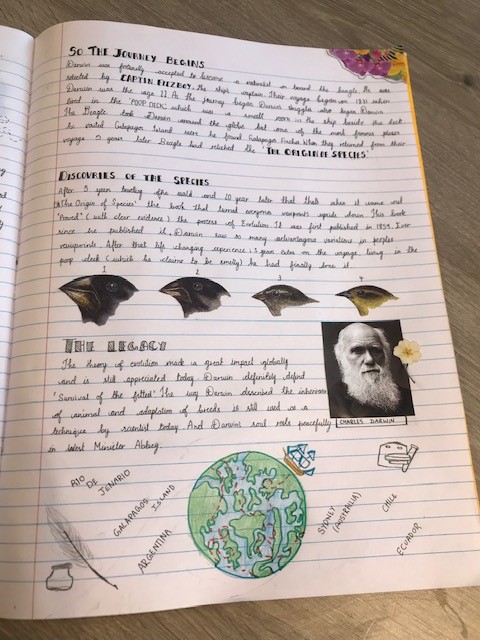 SO THE JOURNEY BEGINS
Darwin was finally accepted to become a naturalist on board the Beagle. He was
selected by CAPTIN FITZROY the ship's captain. Their voyage began on 1831 when
Darwin was the age 22. As the journey began Darwin struggles also began. Darwin
lived in the 'POOP DECK' which was a small room in the ship beside the deck
The Beagle took Darwin around the globe but one of the most famous places
he visited Galapagos Island were he found Galapagos Finches. When they returned from their
voyage 5 years later Beagle had reached the 'THE ORIGIN OF SPECIES'
DISCOURIES OF THE SPECIES
After 5 year traveling the wold and 20 year later that thats when it came out
'The Origin of Species' the book that turned everyones viewpoints upside down. This book
'Proved' (with clear evidence) the process of Evolution. It was first published in 1859. Ever
since he published it, Darwin saw so many advantageous variations in peoples
viewpoints. After that life changing experience: 5 year on the voyage, living in the
poop deck (which he claims to be smelly) he had finally done it.
1 2 4
THE LEGACY
The theory of evolution made a great impact globally
and is still appreciated today. Darwin definitely defind
'Survival of the fittest' The way Darwin described the
of animal and adaption of breeds is still used as a
technique by scientist today. And Darwins soul rests peacefully
in West Minister Abbey.
CHARLES DARWIN
RIO DE JENARIO
GALAPAGOS ISLAND
ARGENTINA
SYDNEY (AUSTRALIA)
CHILE
ECUADOR